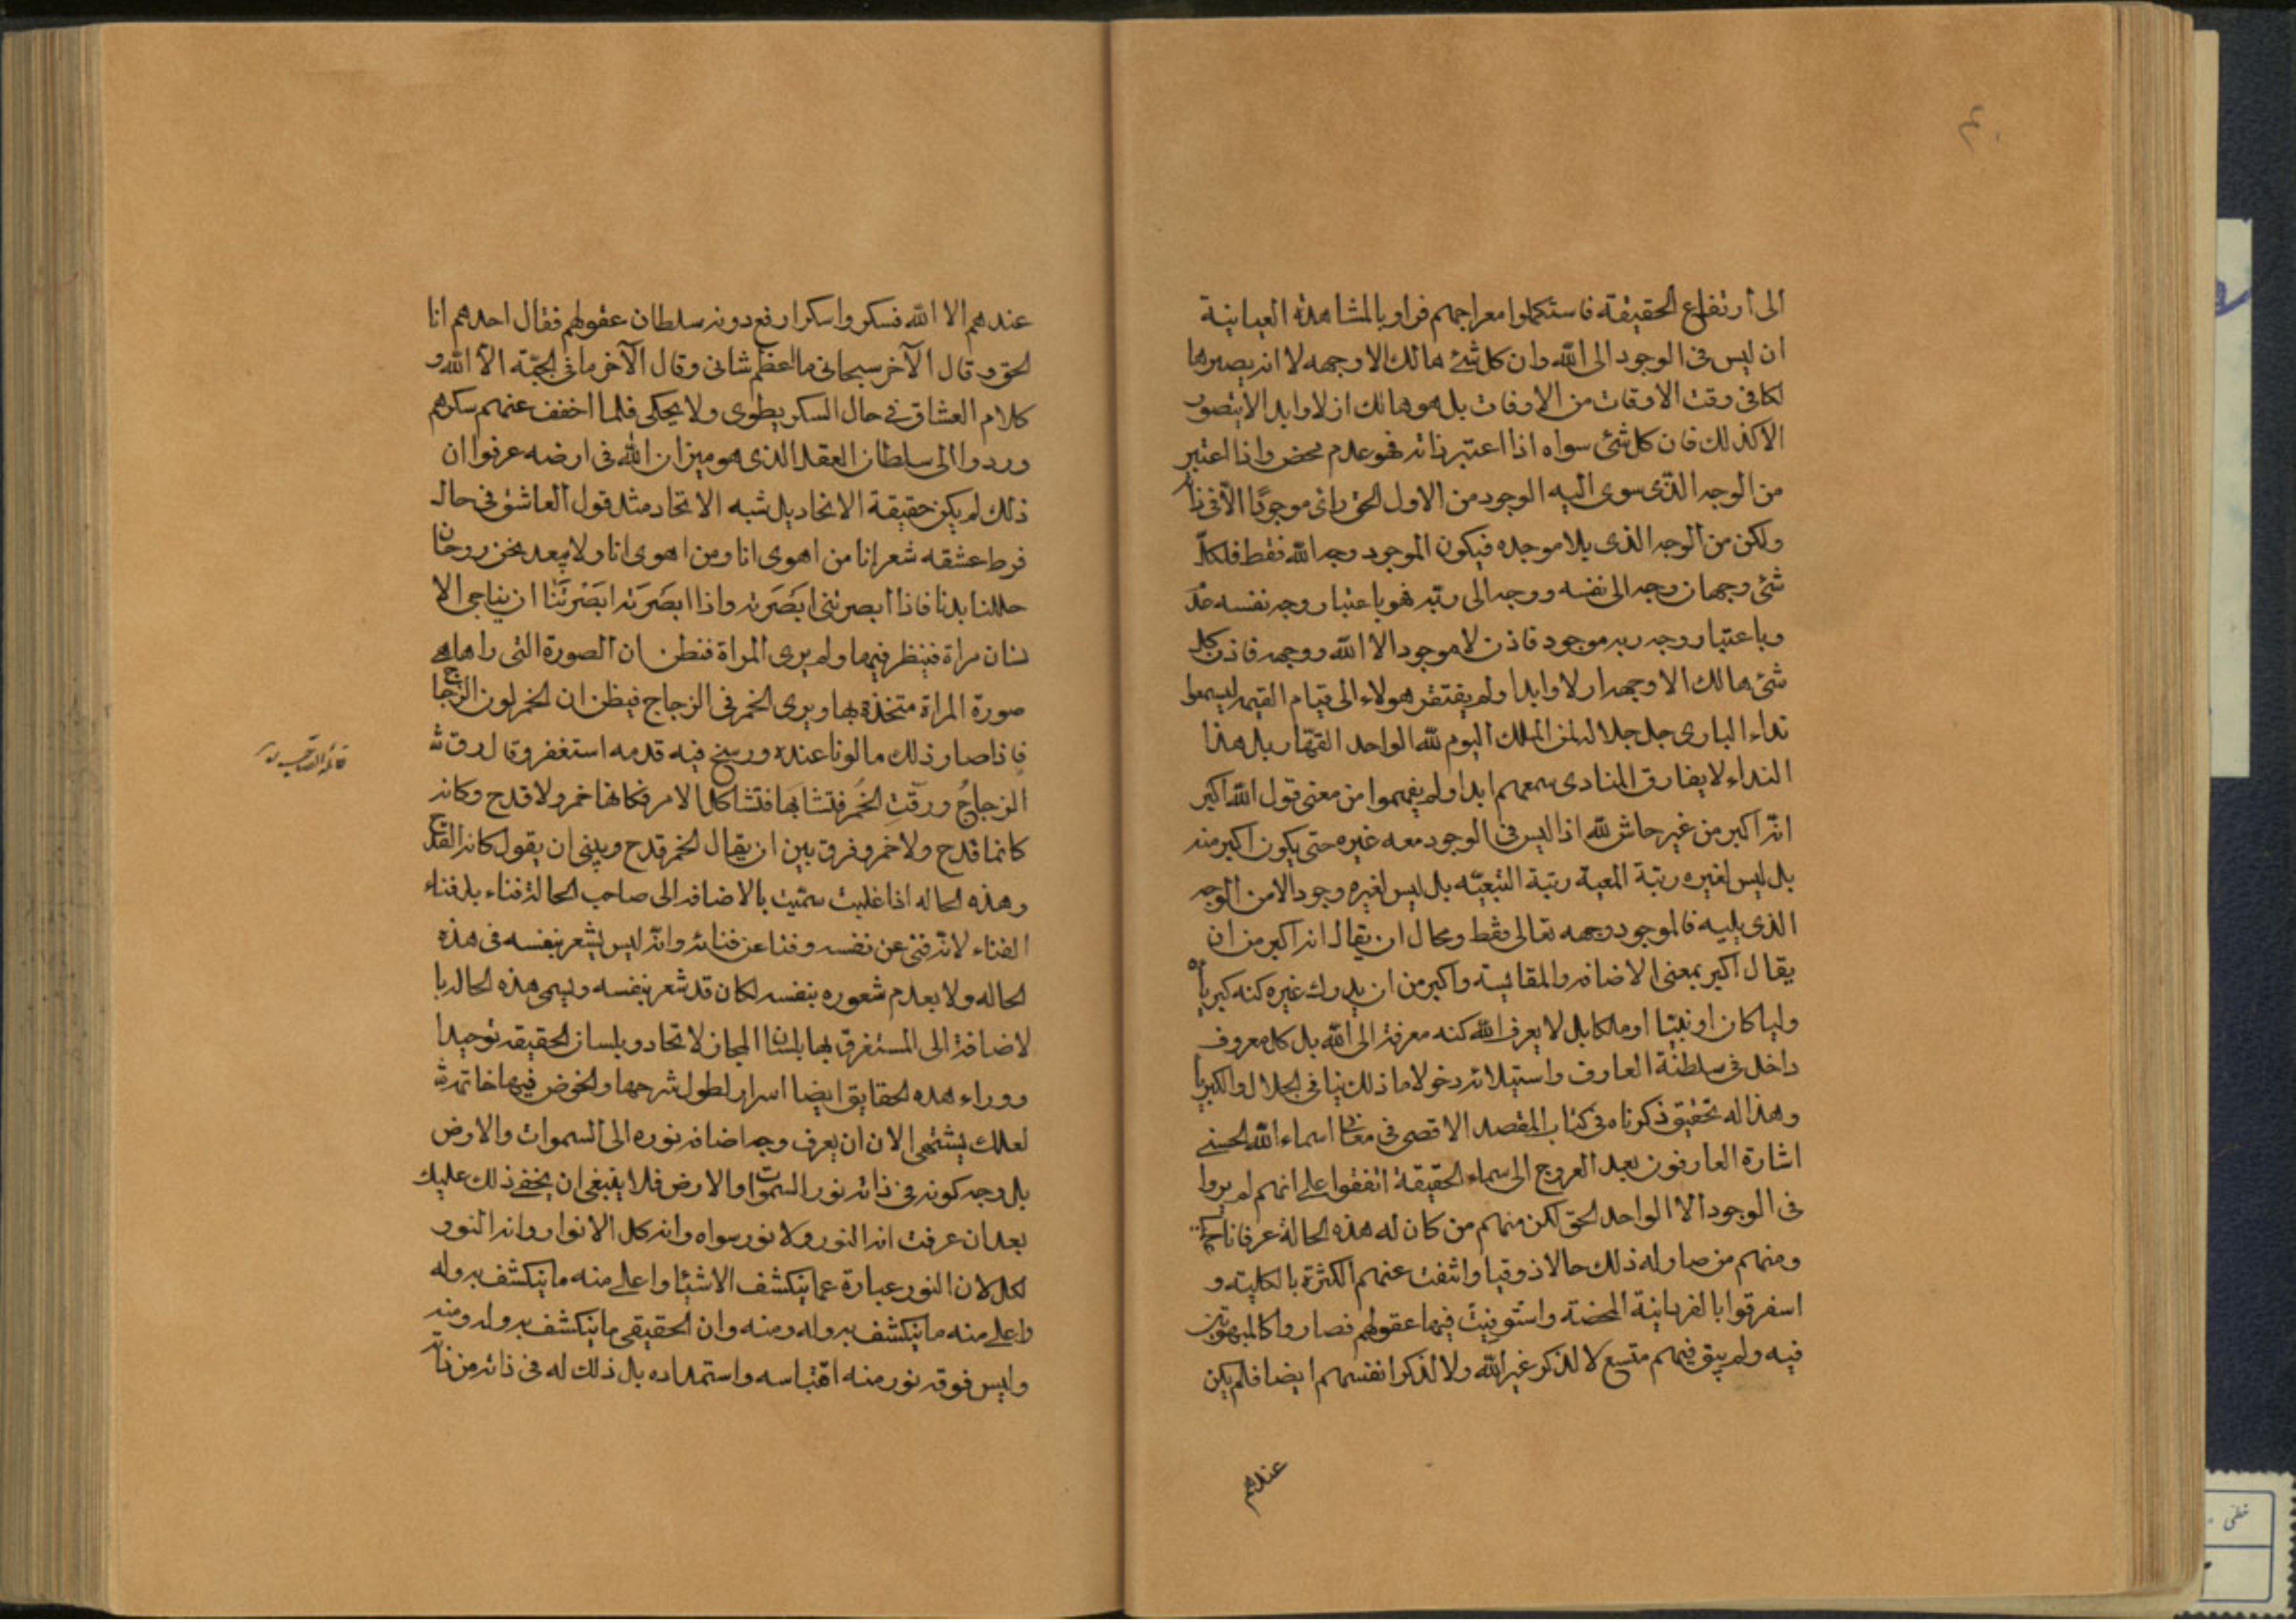 الى ارتفاع الحقيقة فاستكملوا معراجهم فراوا بالمشاهدة العيانية
ان ليس فى الوجود الى الله وان كل شئ هالك الا وجهه لا انه يصير ها
لكا فى وقت الاوقات من الاوقات بل هو هالك ازلا وابدا لا يتصور
الا كذلك فان كل شئ سواه اذا اعتبر ذاته فهو عدم محض واذا اعتبر
من الوجه الذى سوى اليه الوجود من الاول الحق راى موجودا لا فى ذاته
ولكن من الوجه الذى يلا موجده فيكون الموجود وجه الله فقط فلكل
شئ وجهان وجه الى نفسه ووجه الى ربه فهو باعتبار وجه نفسه عدم
وباعتبار وجه ربه موجود فاذن لا موجود الا الله ووجهه فاذن كل
شئ هالك الا وجهه ازلا وابدا ولم يفتقر هولاء الى قيام القيمه ليسمعوا
نداء البارى جل جلاله لمن الملك اليوم لله الواحد القهار بل هذا
النداء لا يفارق المنادى سمعهم ابدا ولم يفهموا من معنى قول الله اكبر
انه اكبر من غير حاش لله اذ اليس فى الوجود معه غيره حتى يكون اكبر منه
بل ليس لغيره رتبة المعية رتبة التبعيّه بل ليس لغيره وجود الا من الوجه
الذى يليه فالموجود وجهه تعالى فقط ومحال ان يقال انه اكبر من ان
يقال اكبر بمعنى الاضافه والمقايسة واكبر من ان يدرك غيره كنه كبرياه
وليا كان او نبيّا او ملكا بل لا يعرف الله كنه معرفته الى الله بل كل معروف
داخل فى سلطنة العارف واستيلائه دخولا ما ذلك ينافى الجلال والكبريا
وهذا له تحقيق ذكرناه فى كتاب المقصد الاقصى فى معانى اسماء الله الحسنى
اشارة العارفون بعد العروج الى سماء الحقيقة اتفقوا على انهم لم يروا
فى الوجود الا الواحد الحق لكن منهم من كان له هذه الحالة عرفانا
ومنهم من صار له ذلك حالا ذوقيا وانتفت عنهم الكثرة بالكلية و
استغرقوا بالفردانية المحضة واستوفيت فيها عقولهم فصاروا كالمبهوتين
فيه ولم يبق فيهم متسع لا لذكر غير الله ولا لذكر انفسهم ايضا فلم يكن
عندهم
عندهم الا الله فسكروا سكرا رفع دونه سلطان عقولهم فقال احدهم انا
الحق وقال الآخر سبحانى ما اعظم شانى وقال الآخر ما فى الجبّة الا الله و
كلام العشاق فى حال السكر يطوى ولا يحكى فلما اخفف عنهم سكرهم
وردوا الى سلطان العقل الذى هو ميزان الله فى ارضه عرفوا ان
ذلك لم يكن حقيقة الاتحاد بل شبه الاتحاد مثل قول العاشق فى حال
فرط عشقه شعر انا من اهوى انا ومن اهوى انا ولا يبعد نحن روحان
حللنا بدنا فاذا ابصرتنى ابصَرته واذا ابصَرته ابصَرتَنا ان يناجى الا
نسان مراة فينظر فيها ولم يرى المراة فنظن ان الصورة التى راهاهى
صورة المراة متخذة بها ويرى الخمر فى الزجاج فيظن ان الخمر لون الزجاج
فاذا صار ذلك مالوفا عنده ورسخ فيه قدمه استغفر وقال رق
الزجاجُ ورقّتِ الخُمر فتشابها فتشاكل الامر فكانها خمر ولا قدح وكانه
كانما قدح ولا خمر وفرق بين ان يقال الخمر قدح وبينى ان يقول كانه القدح
وهذه الحاله اذا غلبت سمّيت بالاضافه الى صاحب الحالة فناء بل فناء
الفناء لانه فنى عن نفسه وفنا عن فنائه وانه ليس يشعر بنفسه فى هذه
الحاله ولا بعدم شعوره بنفسه لكان قد شعر بنفسه ويسمى هذه الحاله با
لاضافة الى المستغرق بها بلسان المجاز لاتحاد وبلسان الحقيقه توحيدا
ووراء هذه الحقايق ايضا اسرار لطول شرحها والخوض فيها خاتمه
لعلك يشتهى الان ان يعرف وجه اضافه نوره الى السموات والارض
بل وجه كونه فى ذاته نور السموات والارض فلا ينبغى ان يخفى ذلك عليك
بعد ان عرفت انه النور ولا نور سواه وانه كل الانوار وانه النور
لكل لان النور عبارة عما ينكشف الاشيا واعلى منه ما ينكشف به وله
واعلى منه ما ينكشف به وله ومنه وان الحقيقى ما ينكشف به وله ومنه
وليس فوقه نور منه اقتباسه واستمداده بل ذلك له فى ذاته من ذاته